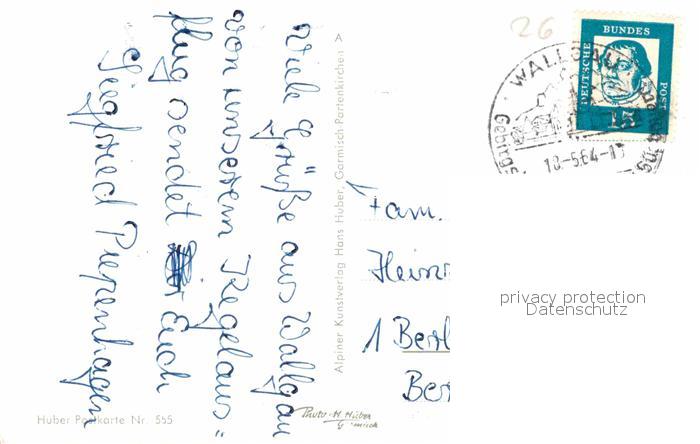 Viele Grüße aus Wallgau
von unserem Kegelaus=
flug sendet Euch
Siegfried Piepenhagen
Alpiner Kunstverlag Hans Huber, Garmisch-Partenkirchen A
Huber Postkarte Nr. 555
Photo-H. Huber
Garmisch
26
DEUTSCHE BUNDES POST
15
WALLGAU
18-5.64-15
Fam.
Heinr
1 Berl
Ber
privacy protection
Datenschutz